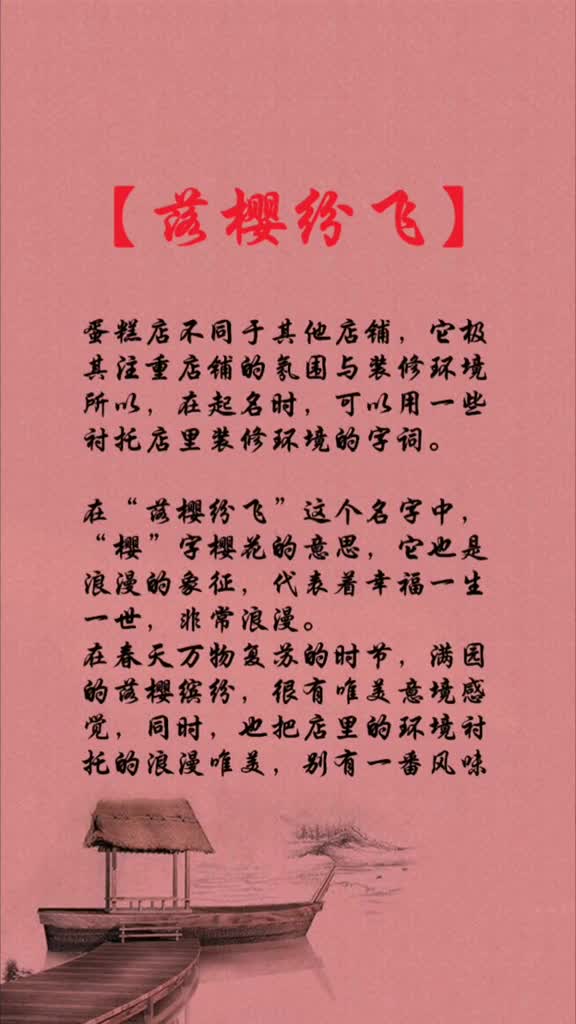 【落樱纷飞】
蛋糕店不同于其他店铺，它极
其注重店铺的氛围与装修环境
所以，在起名时，可以用一些
衬托店里装修环境的字词。
在“落樱纷飞”这个名字中，
“樱”字樱花的意思，它也是
浪漫的象征，代表着幸福一生
一世，非常浪漫。
在春天万物复苏的时节，满园
的落樱缤纷，很有唯美意境感
觉，同时，也把店里的环境衬
托的浪漫唯美，别有一番风味